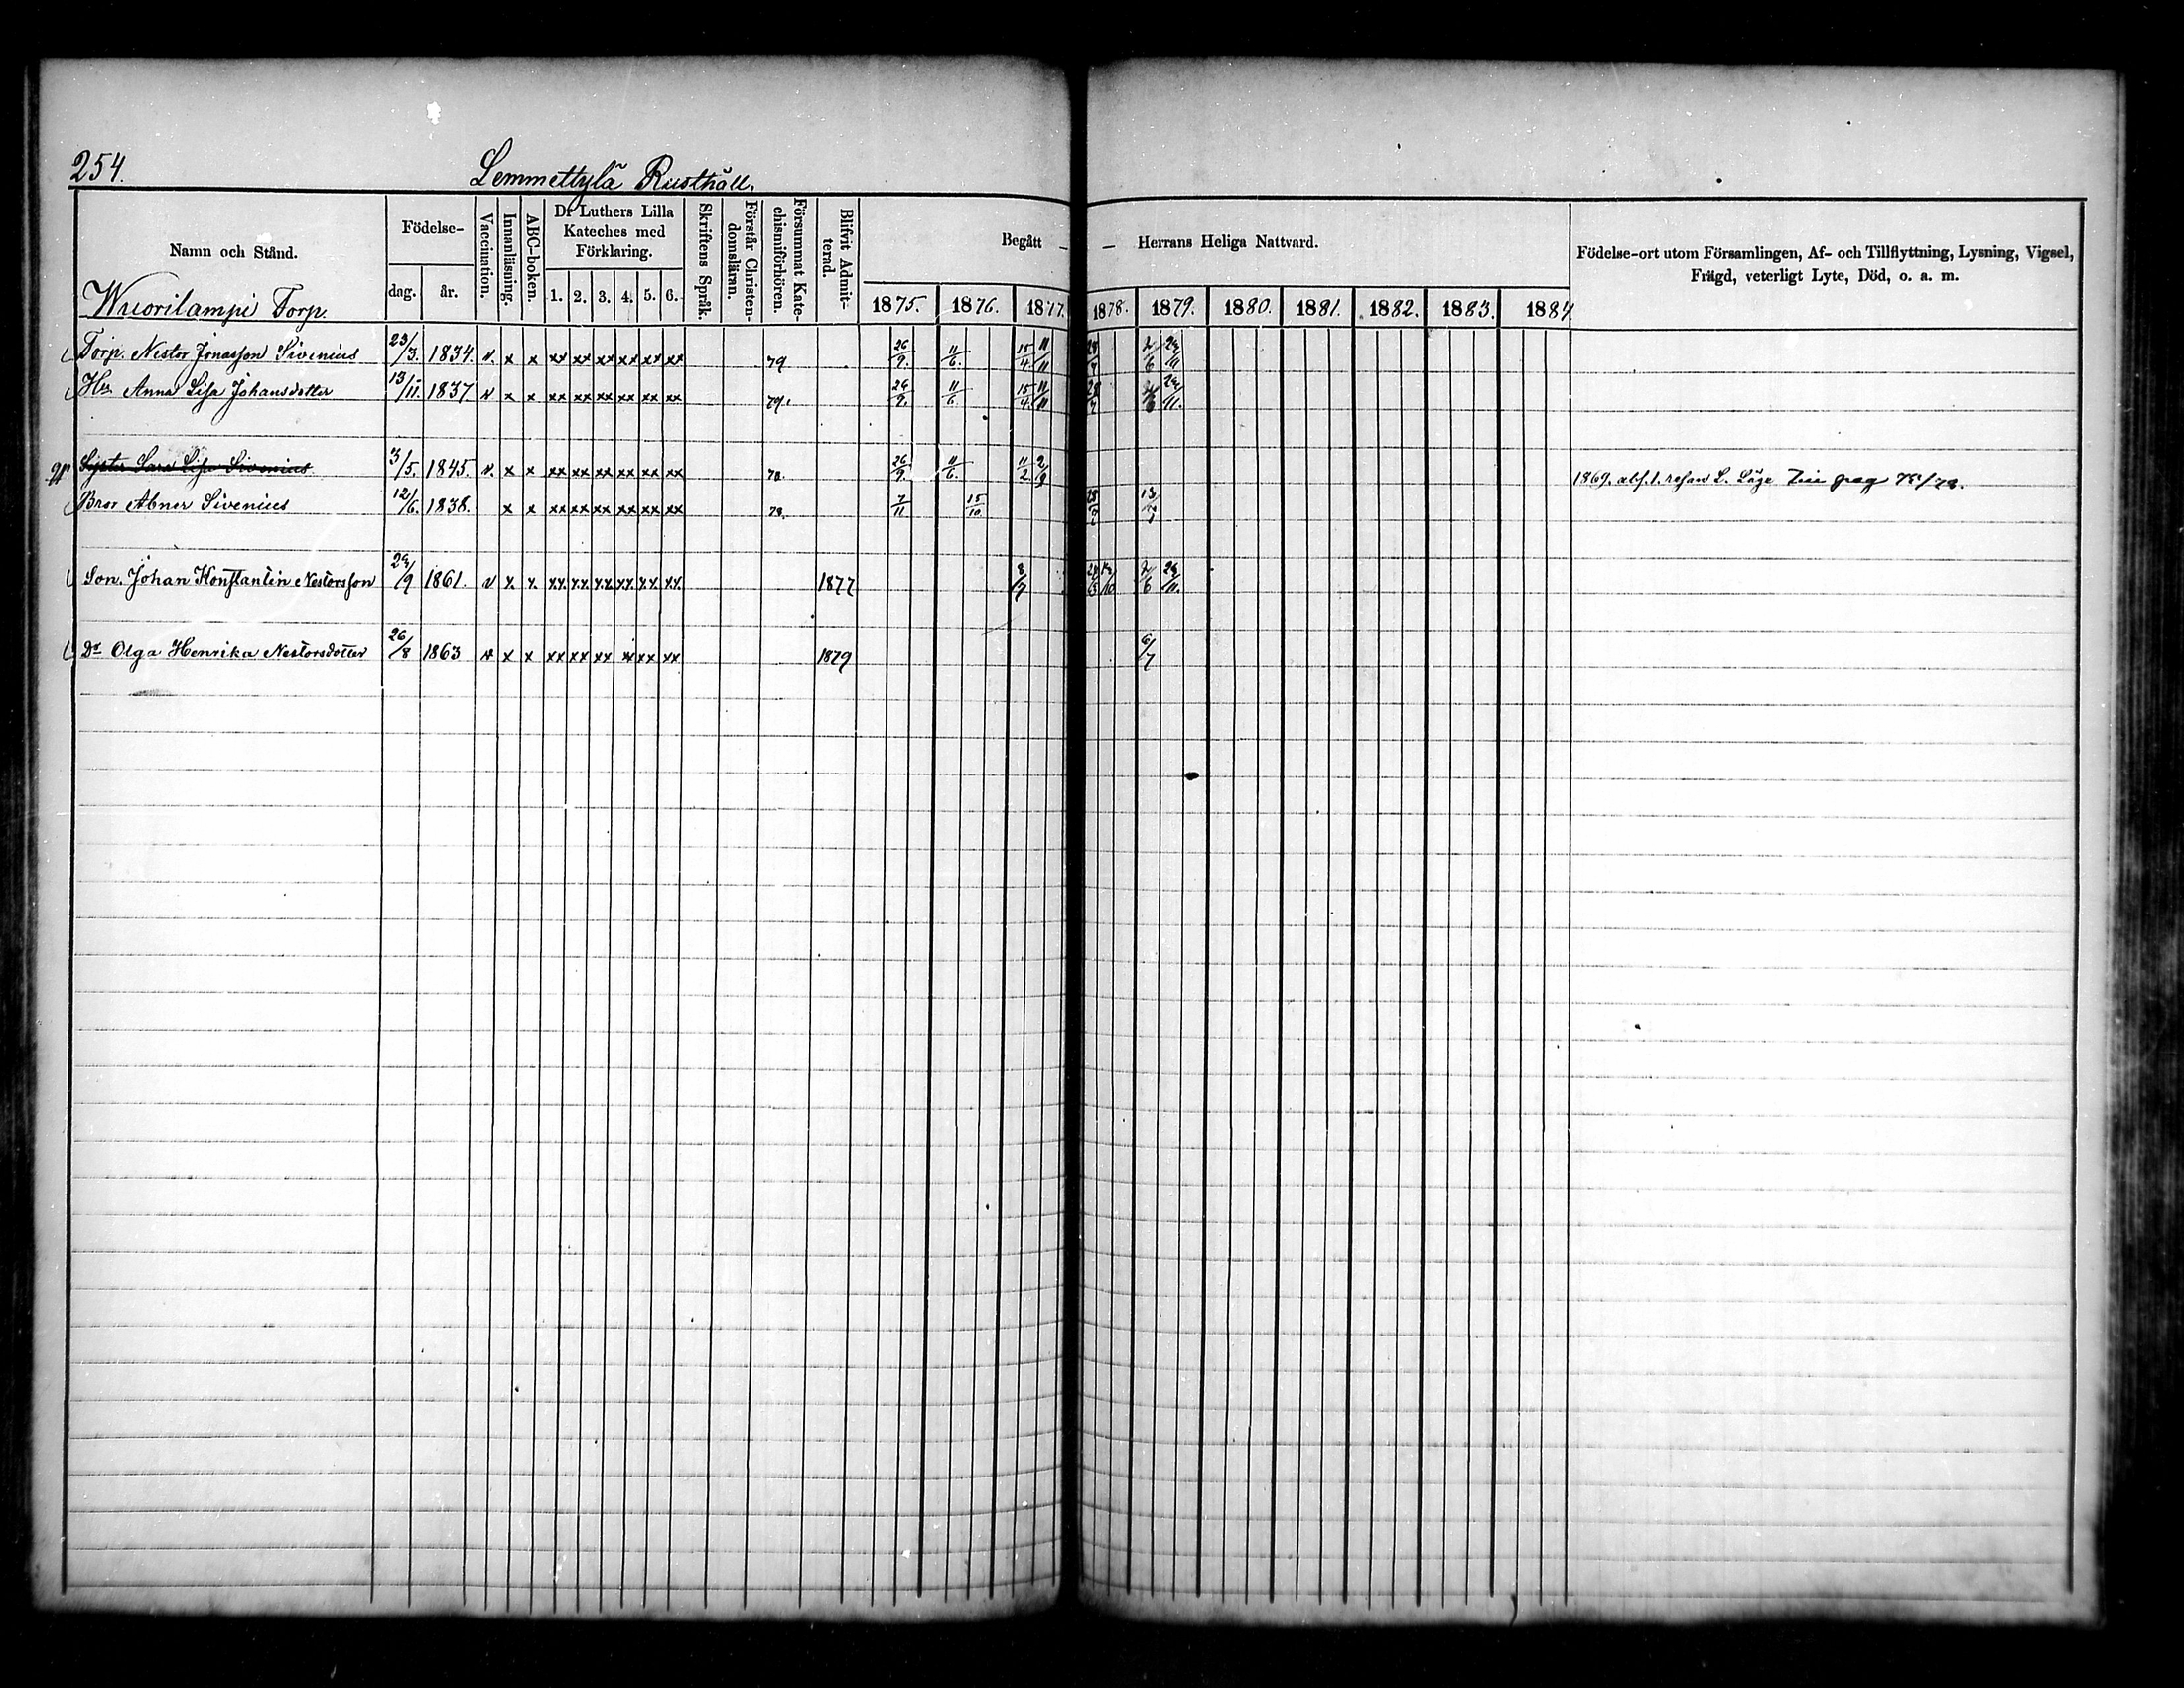 254.
Lemmettylä Rusthåll.
Namn och Stånd.
Födelse-
dag.
år.
Vaccination.
Innanläsning.
ABC-boken.
Dr Luthers Lilla
Kateches med
Förklaring.
1. 2. 3. 4. 5. 6.
Skriftens Språk.
Förstår Christen-
domsläran.
Försummat Kate-
chismiförhören.
Blifvit Admit-
terad.
Begått — — Herrans Heliga Nattvard.
1875. 1876. 1877. 1878. 1879. 1880. 1881. 1882. 1883. 1884
Födelse-ort utom Församlingen, Af- och Tillflyttning, Lysning, Vigsel,
Frägd, veterligt Lyte, Död, o. a. m.
Wuorilampi Torp.
Torp. Nestor Jonasson Sivenius 23/3. 1834. v. x x xx xx xx xx xx xx 79 26/9. 11/6. 15/4 11/11 28/7
Hu. Anna Lisa Johansdotter 13/11. 1837 v x x xx xx xx xx xx xx 79. 26/9. 11/6. 15/4. 11/11 28/7
Syster Sara Lisa Sivenius 3/5. 1845. v. x x xx xx xx xx xx xx 78. 26/9. 11/6. 11/2 2/9 1869. abs. l. Till pag 78/78.
Bror Abner Sivenius 12/6. 1838. x x xx xx xx xx xx xx 78. 7/11 15/10 28/7
Son. Johan Konstantin Nestorsson 29/9 1861. v x x. xx. xx. xx xx. xx. xx. 1877 8/7
Dr Olga Henrika Nestorsdotter 26/8 1863 v x x xx xx xx xx xx xx 1879 6/7